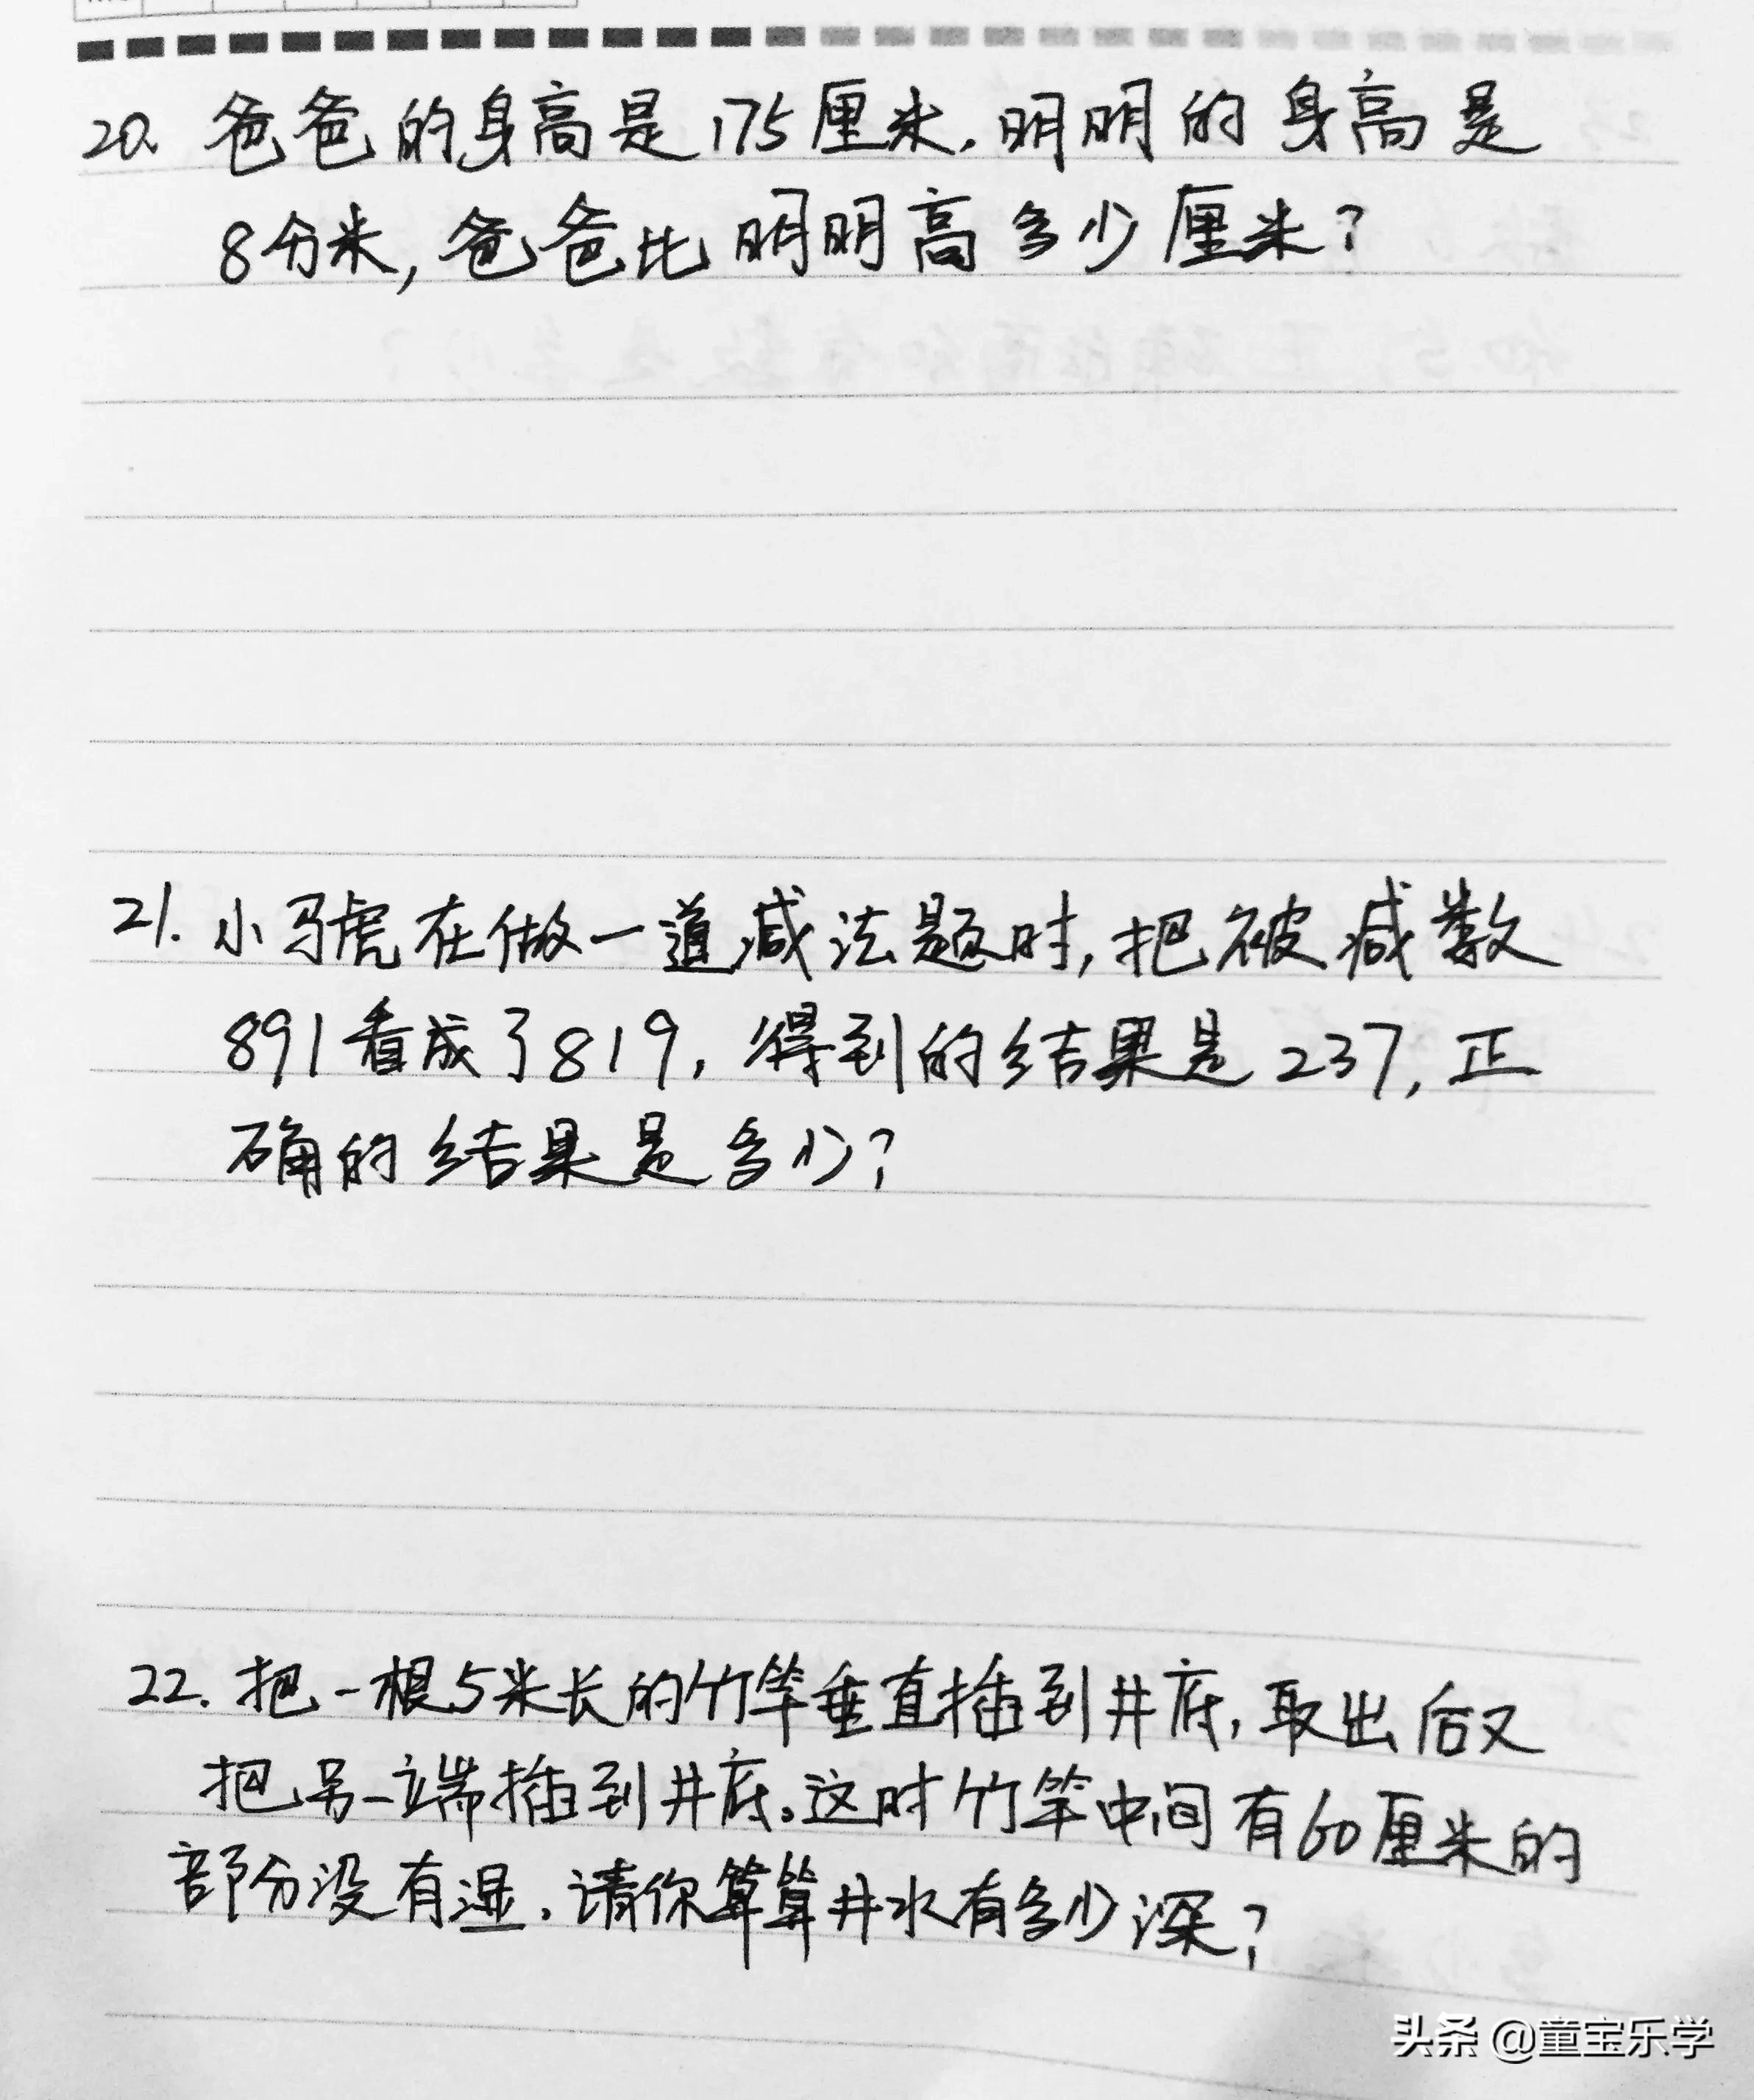 20. 爸爸的身高是175厘米.明明的身高是
8分米,爸爸比明明高多少厘米?
21. 小马虎在做一道减法题时,把被减数
891看成了819,得到的结果是237,正
确的结果是多少?
22. 把一根5米长的竹竿垂直插到井底,取出后又
把另一端插到井底。这时竹竿中间有60厘米的
部分没有湿.请你算算井水有多少深?
头条 @童宝乐学